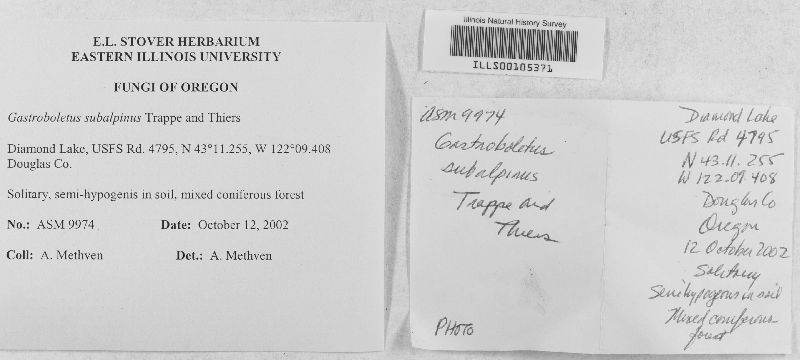 E.L. STOVER HERBARIUM
EASTERN ILLINOIS UNIVERSITY
FUNGI OF OREGON
Gastroboletus subalpinus Trappe and Thiers
Diamond Lake, USFS Rd. 4795, N 43°11.255, W 122°09.408
Douglas Co.
Solitary, semi-hypogenis in soil, mixed coniferous forest
No.: ASM 9974 Date: October 12, 2002
Coll: A. Methven Det.: A. Methven
Illinois Natural History Survey
ILLS00105371
ASM 9974
Gastroboletus
subalpinus
Trappe and
Thiers
PHOTO
Diamond Lake
USFS Rd 4795
N 43.11.255
W 122.09.408
Douglas Co
Oregon
12 October 2002
Solitary
Semihypogeous in soil
Mixed coniferous
forest